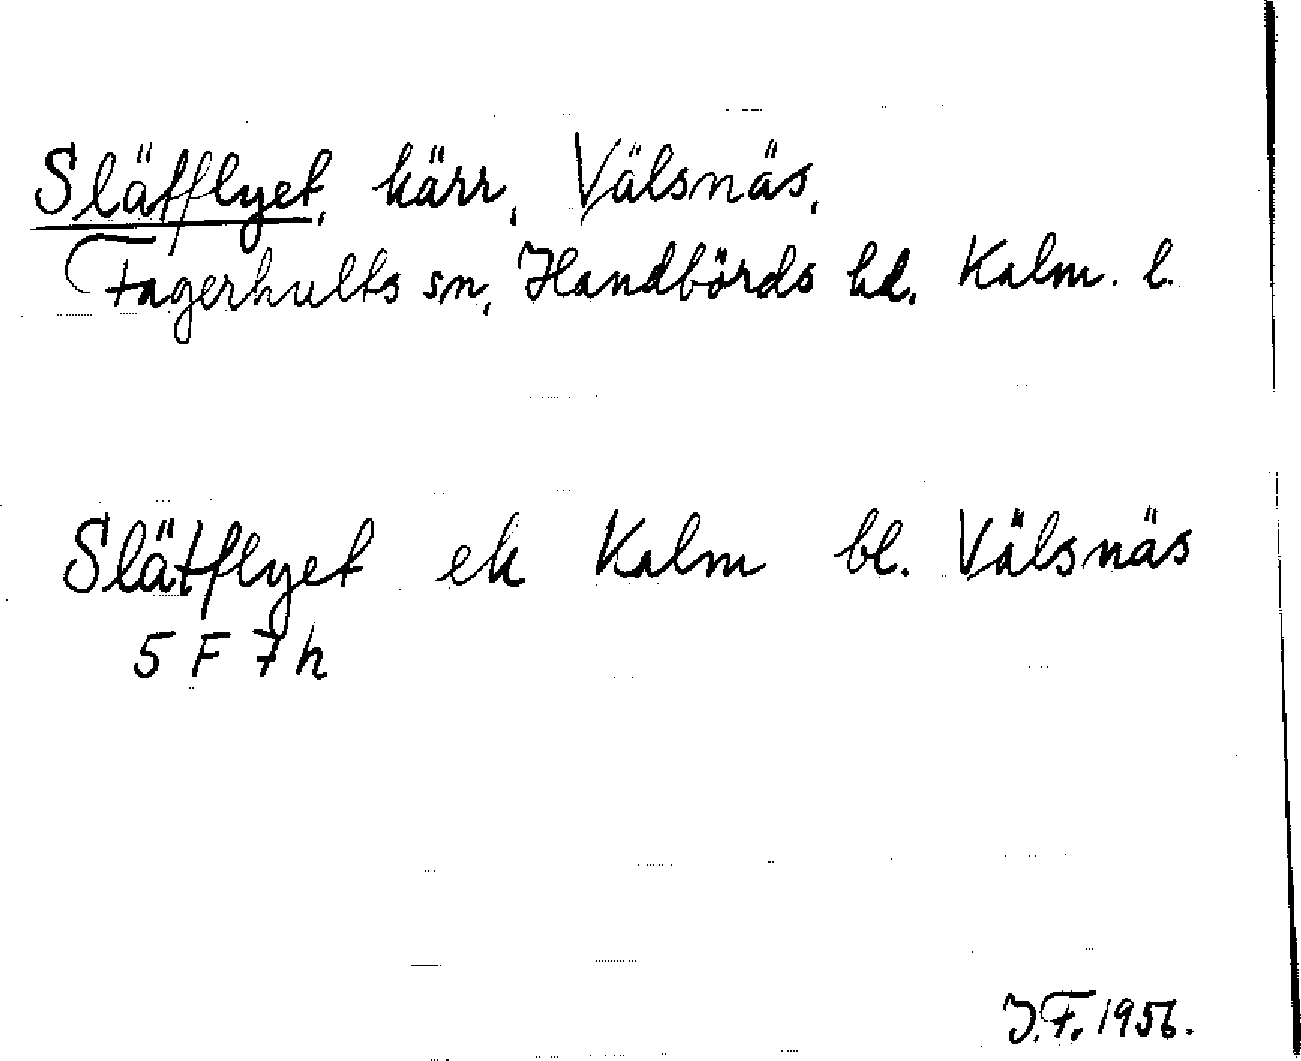 Slätflyet, kärr, Välsnäs,
Fagerhults sn, Handbörds hd. Kalm. l.
Slätflyet ek Kalm bl. Välsnäs
5 F 7 h
J.F. 1956.